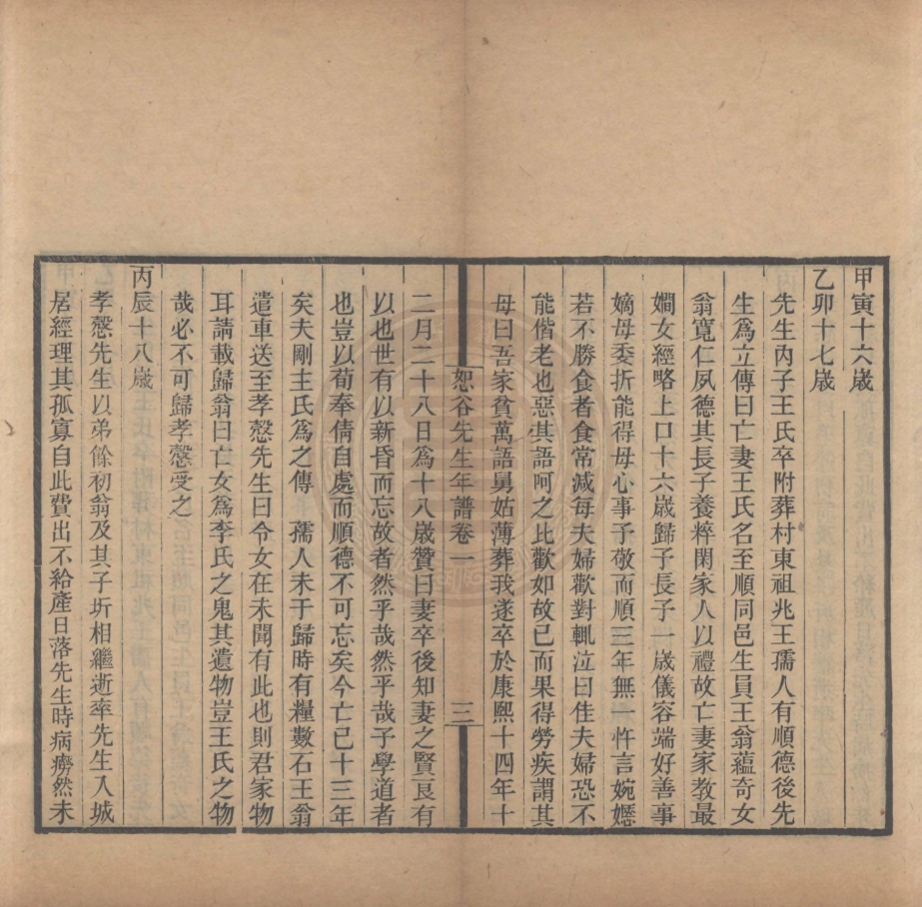 甲寅十六歲
乙卯十七歲
先生內子王氏卒附葬村東祖兆王孺人有順德後先
生爲立傳曰亡妻王氏名至順同邑生員王翁蘊奇女
翁寬仁夙德其長子養粹閑家人以禮故亡妻家教最
嫺女經略上口十六歲歸予長予一歲儀容端好善事
嫡母委折能得母心事予敬而順三年無一忤言婉嫕
若不勝食者食常減每夫婦歡對輒泣曰佳夫婦恐不
能偕老也惡其語呵之比歡如故已而果得勞疾謂其
母曰吾家貧萬語舅姑薄葬我遂卒於康熙十四年十
恕谷先生年譜卷一 三
二月二十八日爲十八歲贊曰妻卒後知妻之賢良有
以也世有以新昏而忘故者然乎哉然乎哉予學道者
也豈以荀奉倩自處而順德不可忘矣今亡已十三年
矣夫剛主氏爲之傳 孺人未于歸時有糧數石王翁
遣車送至孝慤先生曰令女在未聞有此也則君家物
耳請載歸翁曰亡女爲李氏之鬼其遺物豈王氏之物
哉必不可歸孝慤受之
丙辰十八歲
孝慤先生以弟餘初翁及其子圻相繼逝率先生入城
居經理其孤寡自此費出不給產日落先生時病瘠然未